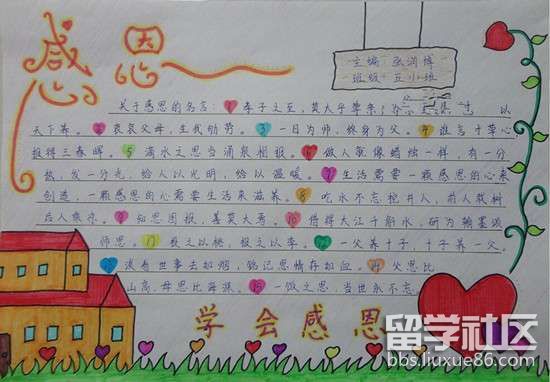 感恩
主编：张润博
班级：五小班
关于感恩的名言：1 孝子之至，莫大乎尊亲； 以
天下养。2 哀哀父母，生我劬劳。3 一日为师，终身为父。4 谁言寸草心
报得三春晖。5 滴水之恩当涌泉相报。6 做人就像蜡烛一样，有一分
热，发一分光，给人以光明，给以温暖。7 生活需要一颗感恩的心来
创造，一颗感恩的心需要生活来滋养。8 吃水不忘挖井人，前人栽树
后人乘凉。9 知恩图报，善莫大焉。10 借得大江千斛水，研为翰墨颂
师恩。11 投之以桃，报之以李。12 一父养十子，十子养一父。
滚着世事去如烟，铭记恩情存如血。14 父恩比
山高，母恩比海深。15 一饭之恩，当世永不忘。
学会感恩
留学社区
bbs.liuxue86.com